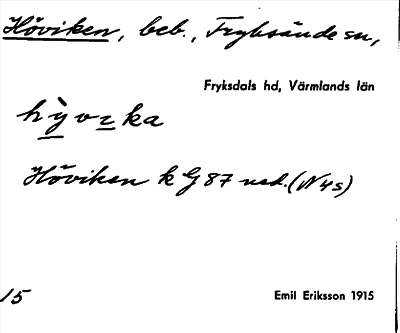 Höviken, beb., Fryksände sn,
Fryksdals hd, Värmlands län
hỳvıka
Höviken k G 87 ned. (N4s)
15
Emil Eriksson 1915